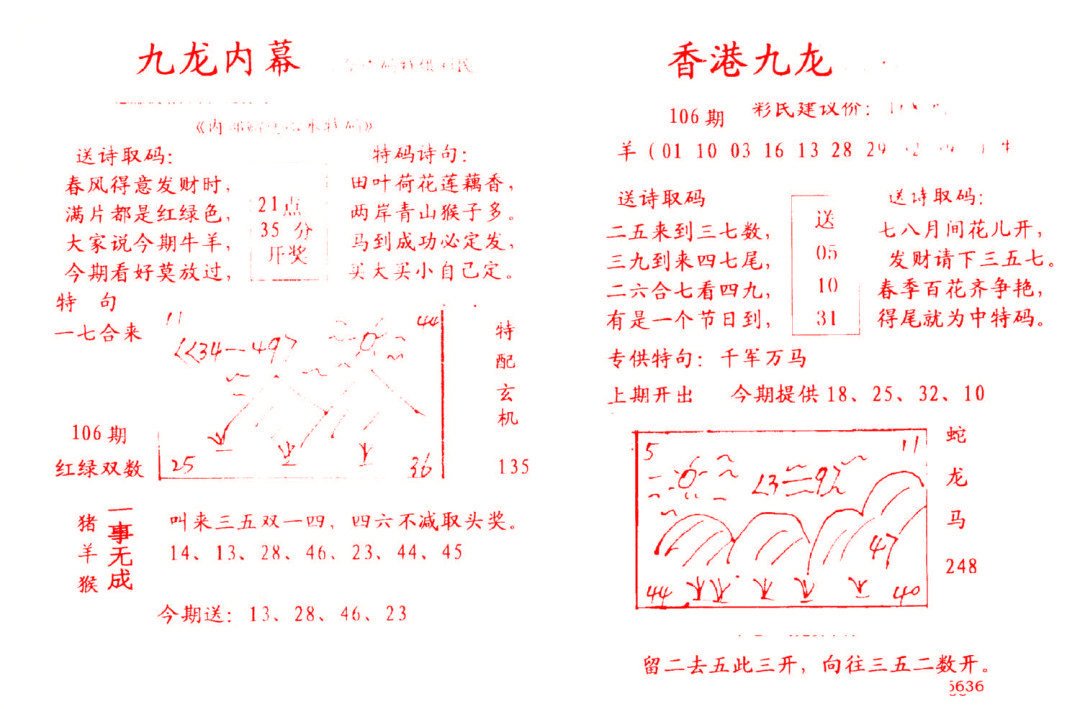 九龙内幕
送诗取码:
春风得意发财时,
满片都是红绿色,
大家说今期牛羊,
今期看好莫放过,
21点
35 分
开奖
特码诗句:
田叶荷花莲藕香,
两岸青山猴子多。
马到成功必定发,
买大买小自己定。
特 句
一七合来
106期
红绿双数
11
44
34—49
25
36
特
配
玄
机
135
猪
羊
猴
一事无成
叫来三五双一四, 四六不减取头奖。
14、13、28、46、23、44、45
今期送: 13、28、46、23
香港九龙
106期 彩民建议价:
羊 (01 10 03 16 13 28 29
送诗取码
二五来到三七数,
三九到来四七尾,
二六合七看四九,
有是一个节日到,
送
05
10
31
送诗取码:
七八月间花儿开,
发财请下三五七。
春季百花齐争艳,
得尾就为中特码。
专供特句: 千军万马
上期开出 今期提供18、25、32、10
5
11
47
44
40
蛇
龙
马
248
留二去五此三开, 向往三五二数开。
5636